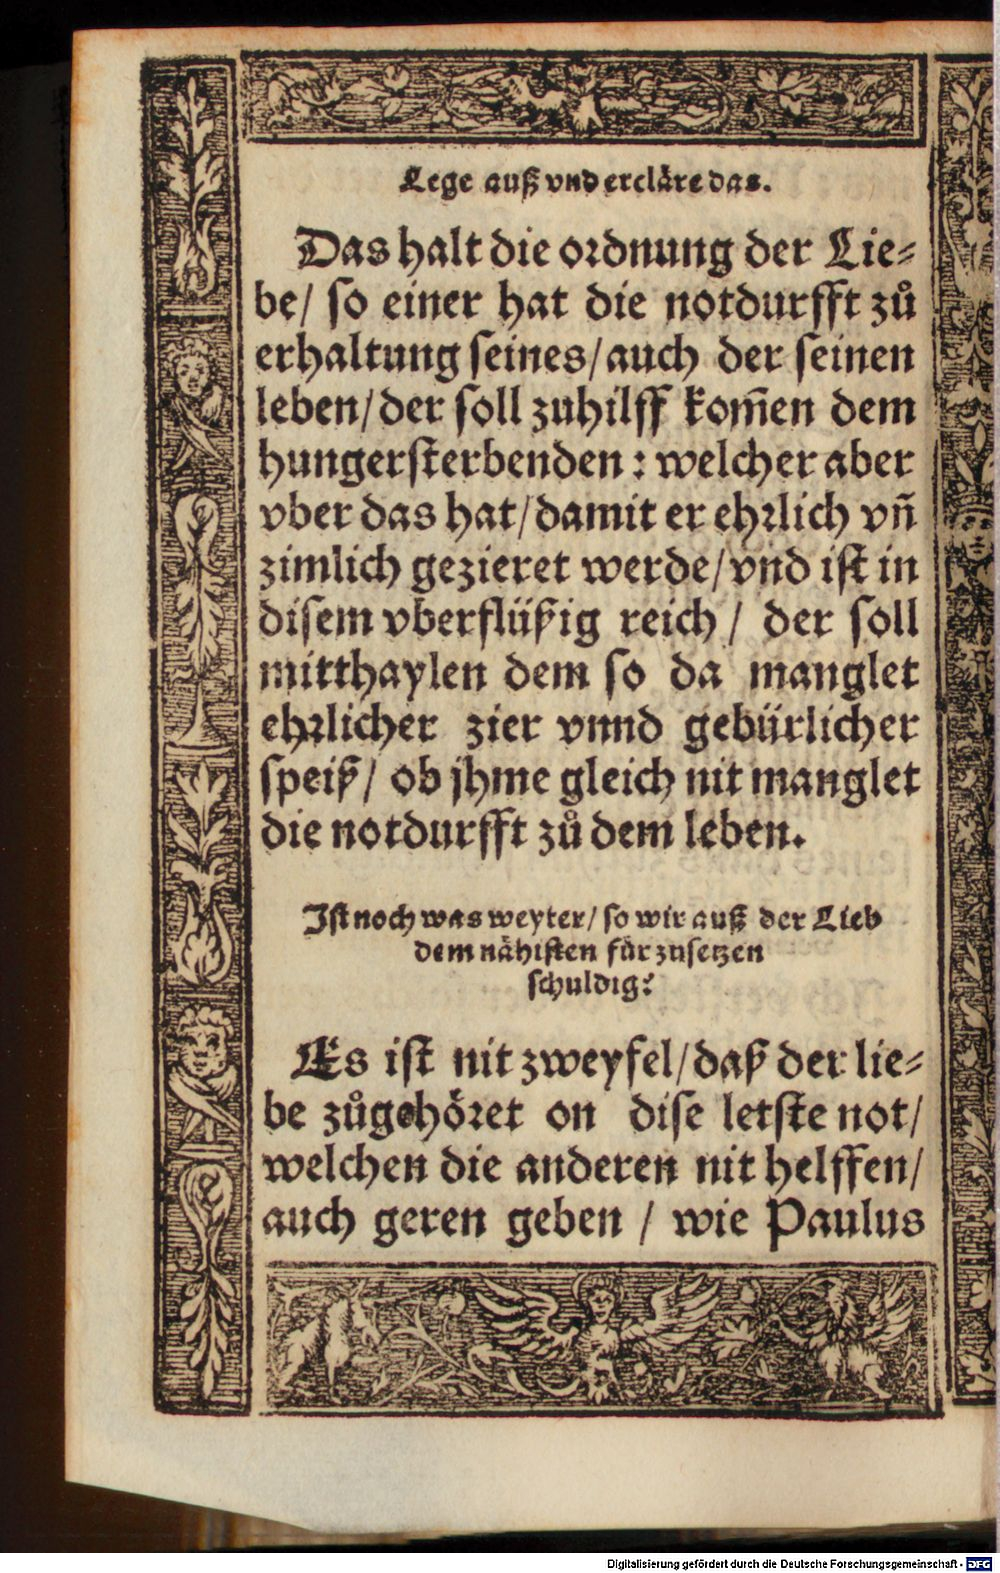 Lege auß vnd ercläre das.
Das halt die ordnung der Lie-
be/ so einer hat die notdurfft zů
erhaltung seines/ auch der seinen
leben/ der soll zuhilff kom̃en dem
hungersterbenden: welcher aber
vber das hat/ damit er ehrlich vñ
zimlich gezieret werde/ vnd ist in
disem vberflüßig reich/ der soll
mitthaylen dem so da manglet
ehrlicher zier vnnd gebürlicher
speiß/ ob jhme gleich nit manglet
die notdurfft zů dem leben.
Ist noch was weyter/ so wir auß der Lieb
dem nähisten für zusetzen
schuldig?
Es ist nit zweyfel/ daß der lie-
be zůgehöret on dise letste not/
welchen die anderen nit helffen/
auch geren geben/ wie Paulus
Digitalisierung gefördert durch die Deutsche Forschungsgemeinschaft - DFG